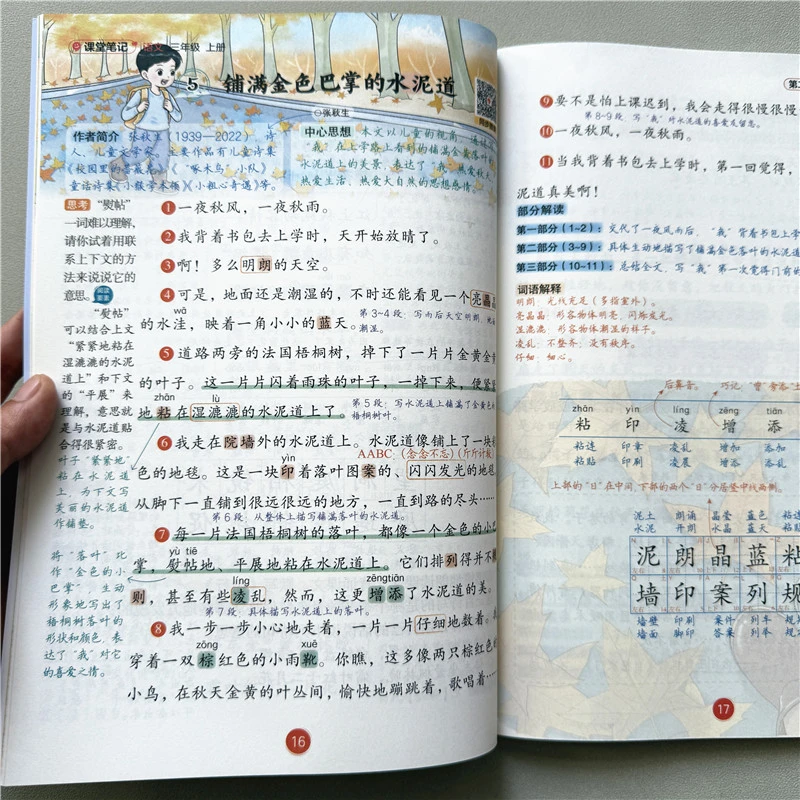 课堂笔记 语文 三年级 上册
5 铺满金色巴掌的水泥道
○张秋生
作者简介 张秋生(1939—2022),诗
人、儿童文学家。主要作品有儿童诗集
《校园里的蔷薇花》《“啄木鸟”小队》
童话诗集《小猴学本领》《小粗心奇遇》等。
中心思想 本文以儿童的视角,通过
“我”在上学路上看到的铺满金黄落叶
水泥道上的美景,表达了“我”热爱秋天
热爱生活、热爱大自然的思想感情。
思考 “熨帖”
一词难以理解,
请你试着用联
系上下文的方
法来说说它的
意思。
“熨帖”
可以结合上文
“紧紧地粘在
湿漉漉的水泥
道上”和下文
的“平展”来
理解,意思就
是与水泥道贴
合得很紧密。
叶子“紧紧地”
粘在水泥道
上,为下文写
美丽的水泥道
作铺垫。
将“落叶”比
作“金色的小
巴掌”,生动
形象地写出了
梧桐树落叶的
形状和颜色,表
达了“我”对它
的喜爱之情。
1 一夜秋风,一夜秋雨。
2 我背着书包去上学时,天开始放晴了。
3 啊!多么明朗的天空。
4 可是,地面还是潮湿的,不时还能看见一个亮晶
第3~4段:写雨后天空明朗,地
wā
的水洼,映着一角小小的蓝天。
潮湿。
5 道路两旁的法国梧桐树,掉下了一片片金黄金
的叶子。这一片片闪着雨珠的叶子,一掉下来,便紧紧
zhān lù
地粘在湿漉漉的水泥道上了。
第5段:写水泥道上铺满了金黄色
梧桐树叶。
6 我走在院墙外的水泥道上。水泥道像铺上了一块
yìn
AABC(念念不忘)(斤斤计较)
色的地毯。这是一块印着落叶图案的、闪闪发光的地毯
从脚下一直铺到很远很远的地方,一直到路的尽头……
第6段:从整体上描写铺满落叶的水泥道。
7 每一片法国梧桐树的落叶,都像一个金色的小
yù tiē
掌,熨帖地、平展地粘在水泥道上。它们排列得并不
líng zēngtiān
则,甚至有些凌乱,然而,这更增添了水泥道的美。
第7段:具体描写水泥道上的落叶。
8 我一步一步小心地走着,一片一片仔细地数着。我
zōng xuē
穿着一双棕红色的小雨靴。你瞧,这多像两只棕红色
小鸟,在秋天金黄的叶丛间,愉快地蹦跳着,歌唱着……
16
9 要不是怕上课迟到,我会走得很慢很慢
第8~9段:写“我”对水泥道的喜爱及留恋。
10 一夜秋风,一夜秋雨。
11 当我背着书包去上学时,第一回觉得,
泥道真美啊!
部分解读
第一部分(1~2):交代了一夜风雨后,“我”背着书包上学
第二部分(3~9):具体生动地描写了铺满金色落叶的水泥道
第三部分(10~11):总结全文,写“我”第一次觉得门前的
词语解释
明朗:光线充足(多指室外)。
亮晶晶:形容物体明亮、闪烁发光。
湿漉漉:形容物体潮湿的样子。
凌乱:不整齐;没有秩序。
仔细:细心。
后鼻音。
zhān yìn líng zēng tiān
粘 印 凌 增 添
粘连 印章 凌乱 增加 添加
粘贴 印刷 凌晨 增添 添乱
上部的“日”在中间,下部的两个“日”分居竖中线两侧。
泥土 朗诵 晶莹 蓝色 粘
水泥 开朗 水晶 蓝天 粘贴
泥 朗 晶 蓝 粘
墙 印 案 列 规
墙壁 印刷 案件 列车 规
墙面 脚印 答案 列举 规
17